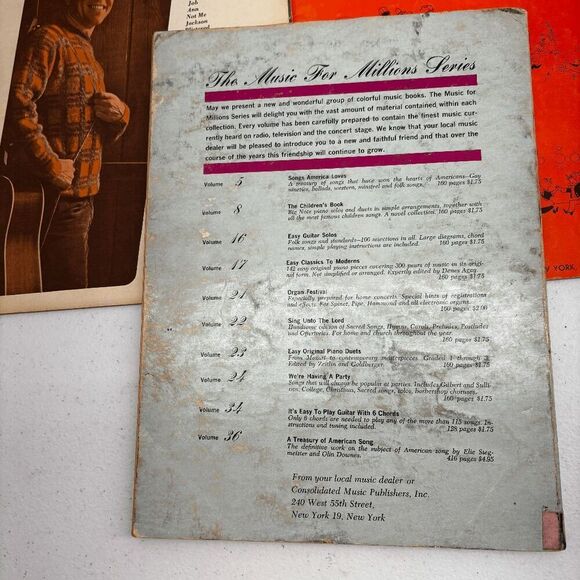 Job
Ann
Not Me
Jackson
The Music For Millions Series
May we present a new and wonderful group of colorful music books. The Music for
Millions Series will delight you with the vast amount of material contained within each
collection. Every volume has been carefully prepared to contain the finest music cur-
rently heard on radio, television and the concert stage. We know that your local music
dealer will be pleased to introduce you to a new and faithful friend and that over the
course of the years this friendship will continue to grow.
Volume 5 Songs America Loves
A treasury of songs that have won the hearts of Americans—Gay
nineties, ballads, western, minstrel and folk songs. 160 pages $1.75
Volume 8 The Children's Book
Big Note piano solos and duets in simple arrangements, together with
all the most famous children songs. A novel collection. 160 pages $1.75
Volume 16 Easy Guitar Solos
Folk songs and standards—166 selections in all. Large diagrams, chord
names, simple playing instructions are included. 160 pages $1.75
Volume 17 Easy Classics To Moderns
142 easy original piano pieces covering 300 years of music in its origi-
nal form. Not simplified or arranged. Expertly edited by Denes Agay
160 pages $1.75
Volume 21 Organ Festival
Especially prepared for home concerts. Special hints of registrations
and effects. For Spinet, Pipe, Hammond and all electronic organs.
160 pages $2.00
Volume 22 Sing Unto The Lord
Handsome edition of Sacred Songs, Hymns, Carols, Preludes, Postludes
and Offertories. For home and church throughout the year.
160 pages $1.75
Volume 23 Easy Original Piano Duets
From Mozart to contemporary masterpieces. Graded 1 through 3.
Edited by Zeitlin and Goldberger. 160 pages $1.75
Volume 24 We're Having A Party
Songs that will always be popular at parties. Includes Gilbert and Sulli-
van, College, Christmas, Sacred songs, solos, barbershop choruses.
160 pages $1.75
Volume 34 It's Easy To Play Guitar With 6 Chords
Only 6 chords are needed to play any of the more than 115 songs. In-
structions and tuning included. 128 pages $1.75
Volume 36 A Treasury of American Song
The definitive work on the subject of American song by Elie Sieg-
meister and Olin Downes. 416 pages $4.95
From your local music dealer or
Consolidated Music Publishers, Inc.
240 West 55th Street,
New York 19, New York
YORK